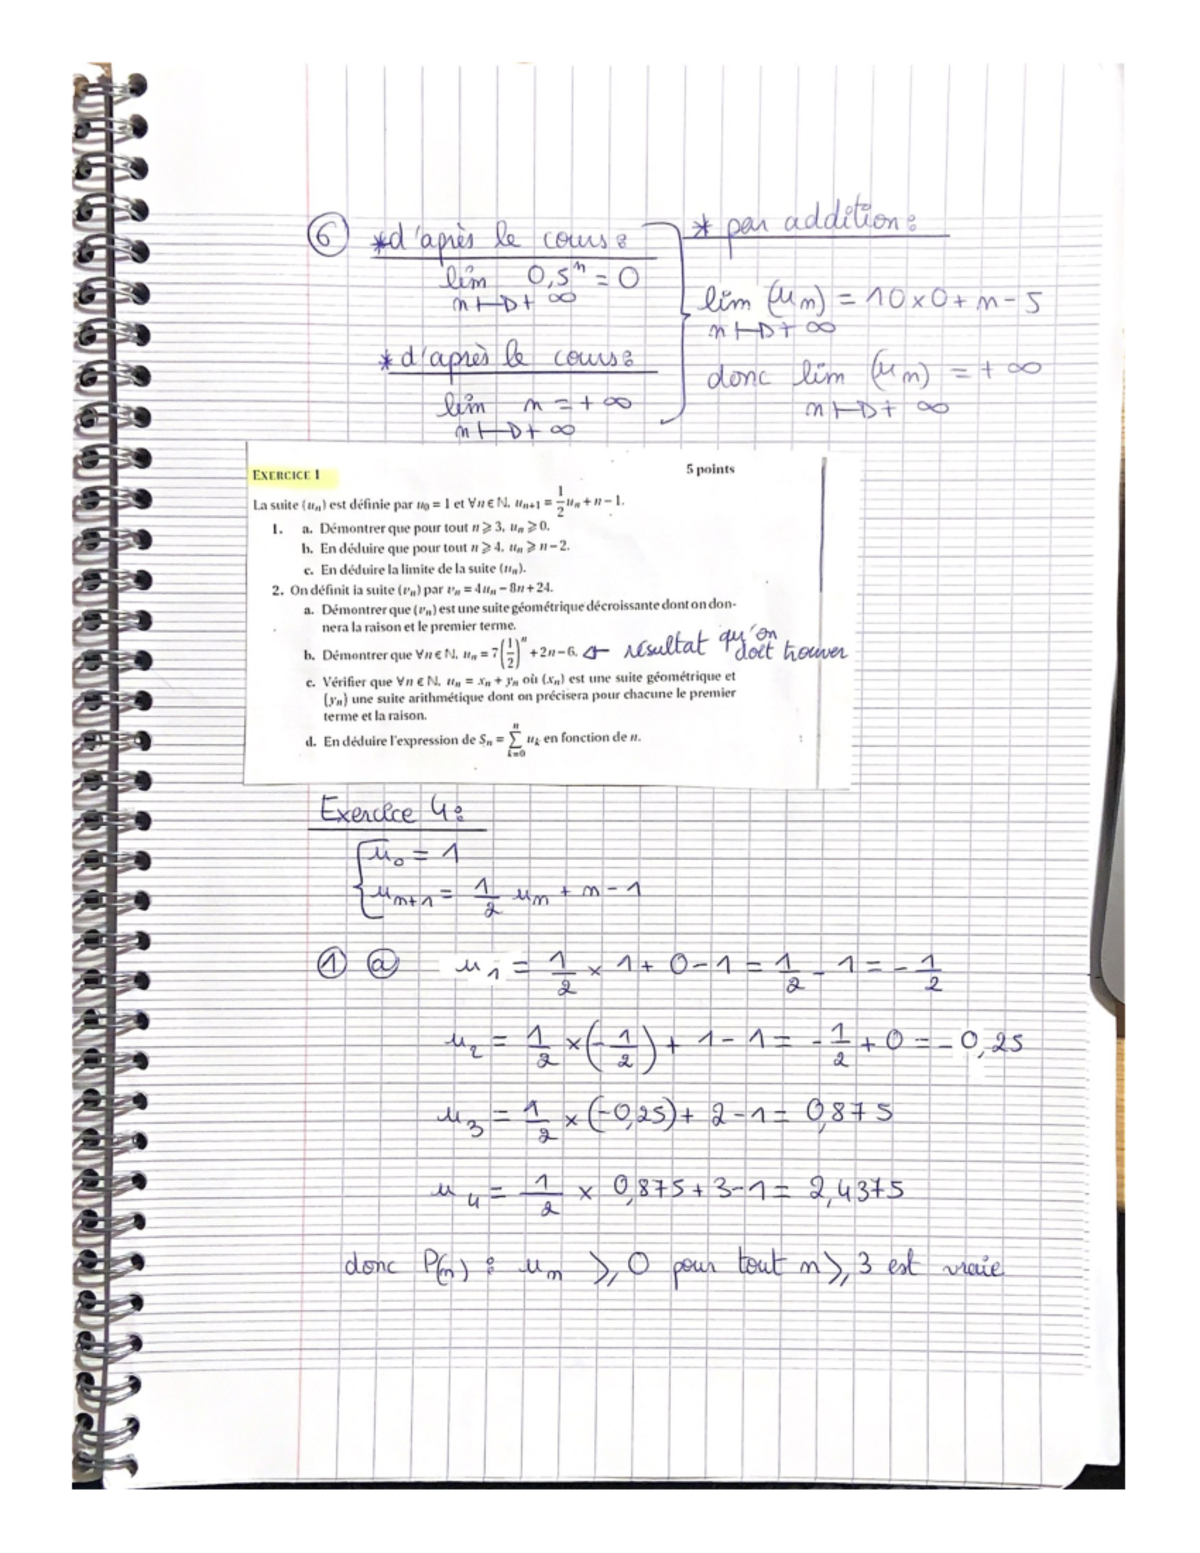 ⑥ *d'après le cours : * par addition :
lim 0,5ⁿ = 0
n↦+∞
lim (un) = 10×0+n-5
n↦+∞
*d'après le cours :
donc lim (un) = +∞
n↦+∞
lim n = +∞
n↦+∞
EXERCICE 1 5 points
La suite (uₙ) est définie par u₀ = 1 et ∀n ∈ ℕ, uₙ₊₁ = 1/2 uₙ + n − 1.
1. a. Démontrer que pour tout n ⩾ 3, uₙ ⩾ 0.
b. En déduire que pour tout n ⩾ 4, uₙ ⩾ n − 2.
c. En déduire la limite de la suite (uₙ).
2. On définit la suite (vₙ) par vₙ = 4uₙ − 8n + 24.
a. Démontrer que (vₙ) est une suite géométrique décroissante dont on don-
nera la raison et le premier terme.
b. Démontrer que ∀n ∈ ℕ, uₙ = 7(1/2)ⁿ + 2n − 6. ← résultat qu'on
doit trouver
c. Vérifier que ∀n ∈ ℕ, uₙ = xₙ + yₙ où (xₙ) est une suite géométrique et
(yₙ) une suite arithmétique dont on précisera pour chacune le premier
terme et la raison.
d. En déduire l'expression de Sₙ = ∑ₖ₌₀ⁿ uₖ en fonction de n.
Exercice 4 :
{ u₀ = 1
uₙ₊₁ = 1/2 uₙ + n - 1
① ⓐ u₁ = 1/2 × 1 + 0 - 1 = 1/2 - 1 = - 1/2
u₂ = 1/2 × (- 1/2) + 1 - 1 = - 1/2 + 0 = - 0,25
u₃ = 1/2 × (-0,25) + 2 - 1 = 0,875
u₄ = 1/2 × 0,875 + 3 - 1 = 2,4375
donc P(n) : uₙ ⩾ 0 pour tout n ⩾ 3 est vraie